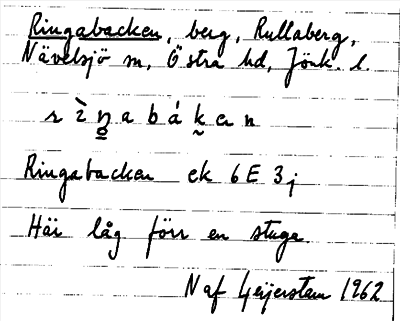 Ringabacken, berg, Rullaberg,
Nävelsjö sn, Östra hd, Jönk. l.
r ì ŋ a b á k e n
Ringabacken ek 6E 3j
Här låg förr en stuga.
N af Geijerstam 1962